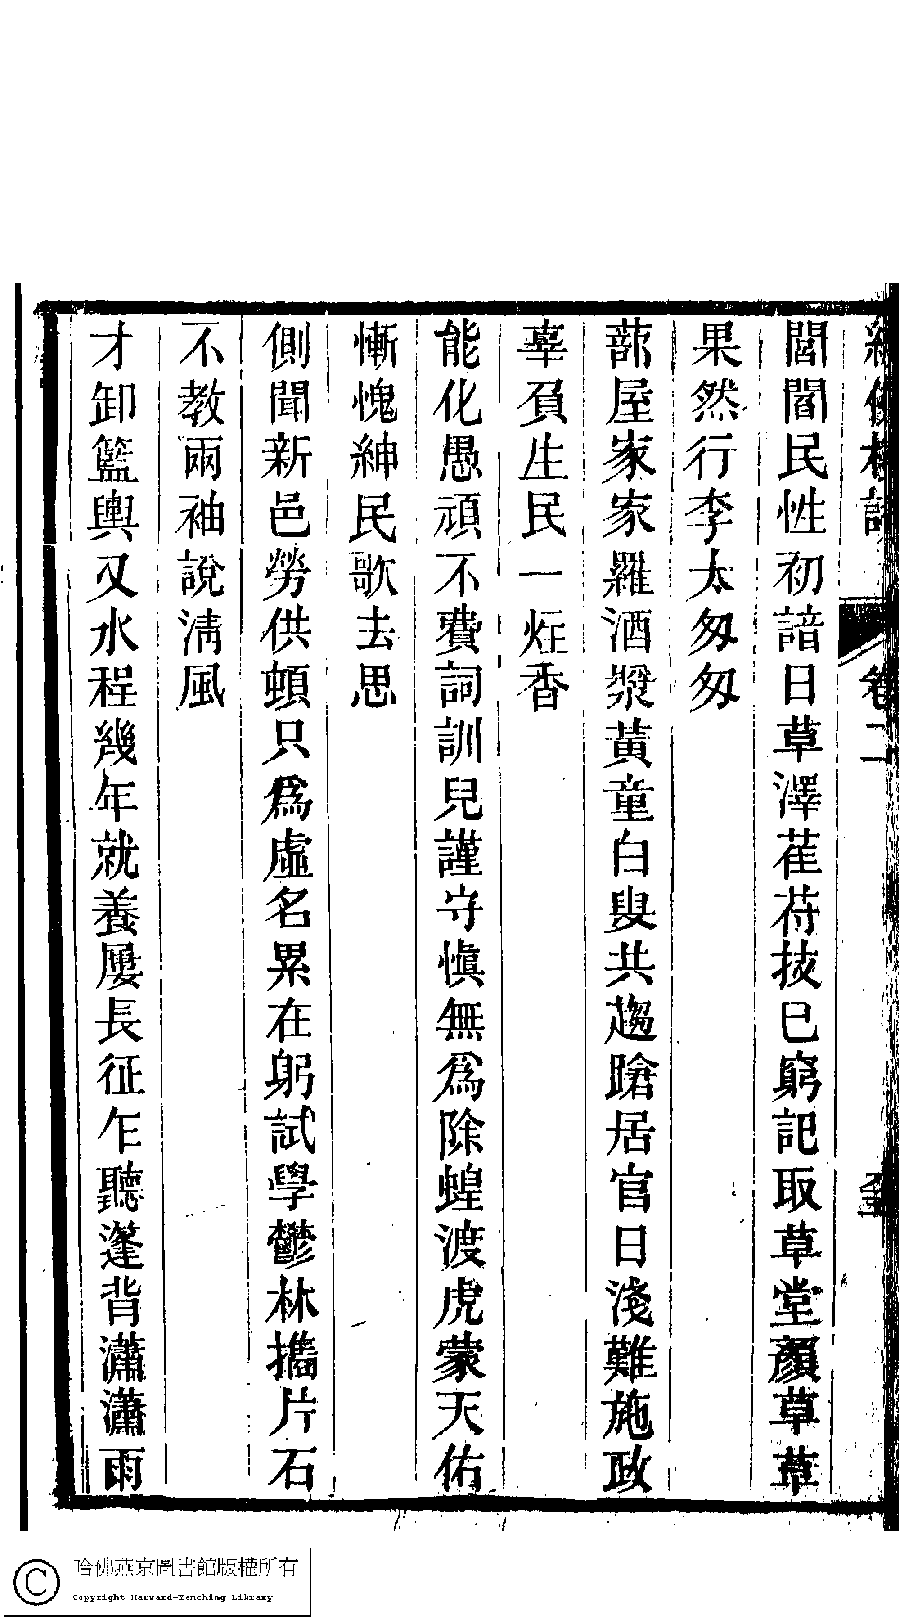 卷二
閭閻民性初諳日草澤萑苻技已窮記取草堂顏草草
果然行李太匆匆
蔀屋家家羅酒漿黃童白叟共趨蹌居官日淺難施政
辜負生民一炷香
能化愚頑不費詞訓兒謹守慎無為除蝗渡虎蒙天佑
慚愧紳民歌去思
側聞新邑勞供頓只為虛名累在躬試學鬱林攜片石
不教兩袖說淸風
才卸籃輿又水程幾年就養屢長征乍聽蓬背瀟瀟雨
哈佛燕京圖書館版權所有
Copyright Harvard-Yenching Library